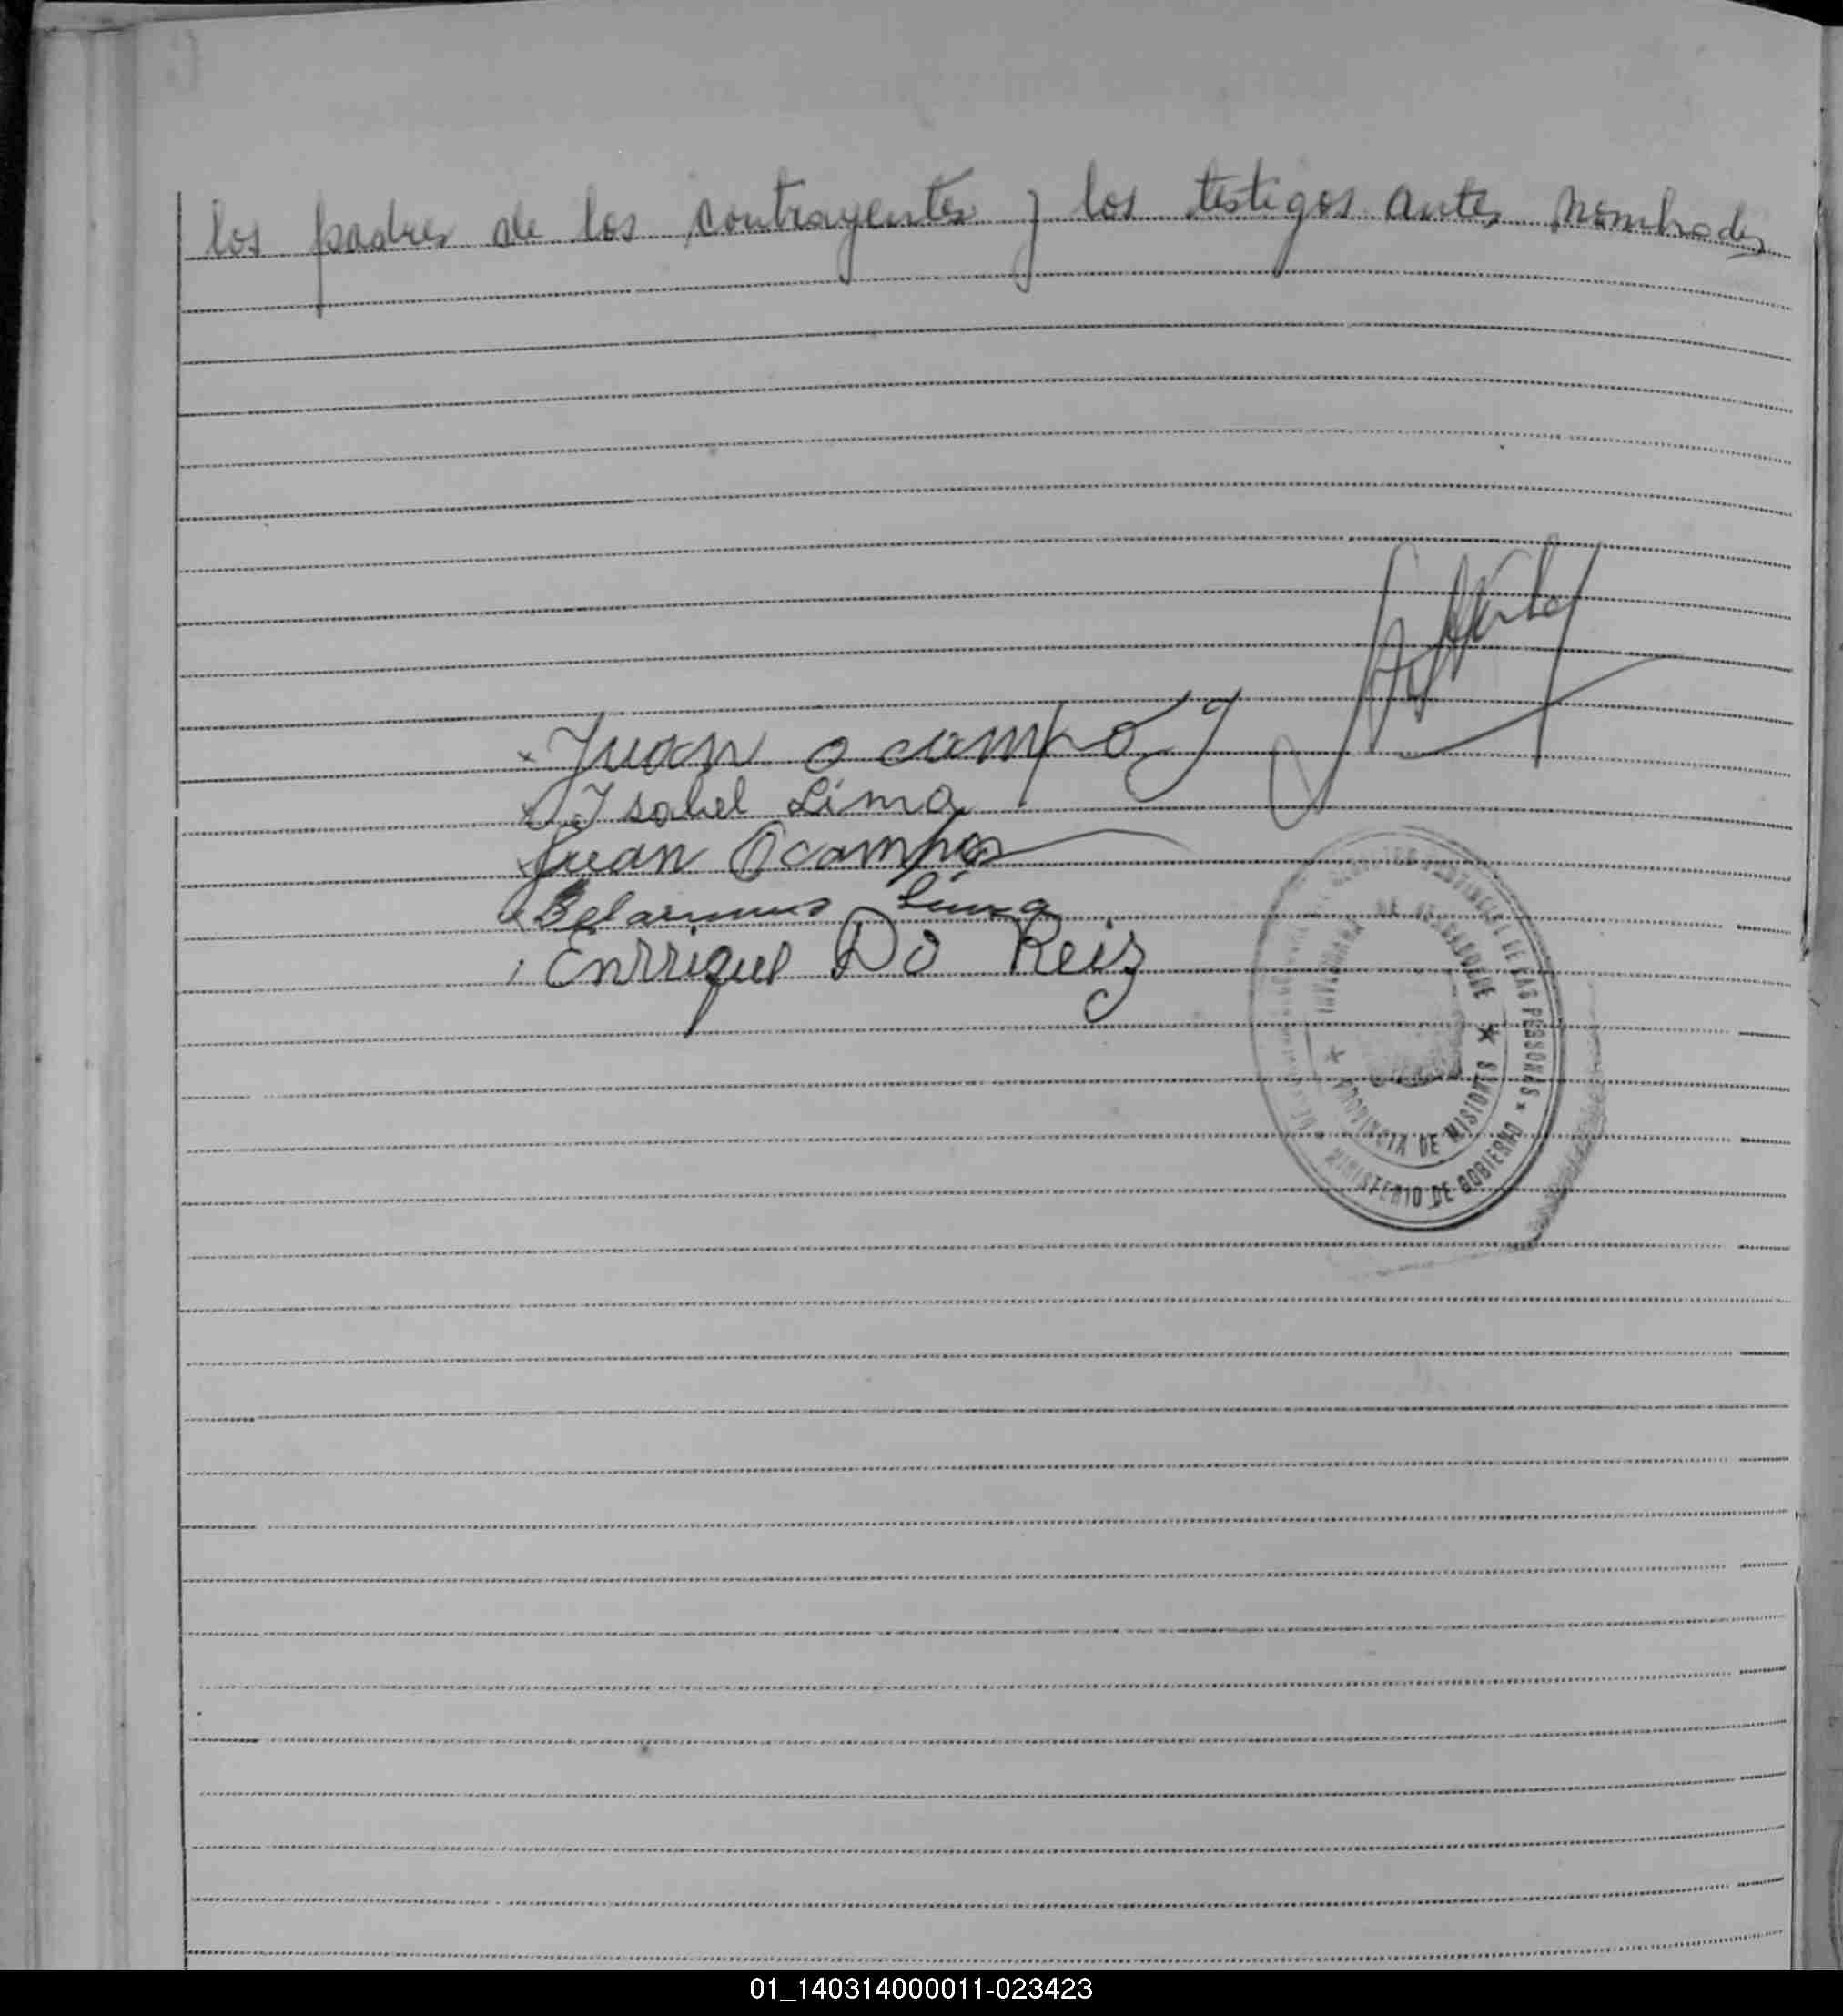 los padres de los contrayentes y los testigos antes nombrados
Juan Ocampo
Isabel Lima
Juan Ocampos
Belarmino Lima
Enrriques Do Reis
PROVINCIAL DE LAS PERSONAS * MINISTERIO DE GOBIERNO
* PROVINCIA DE MISIONES *
01_140314000011-023423